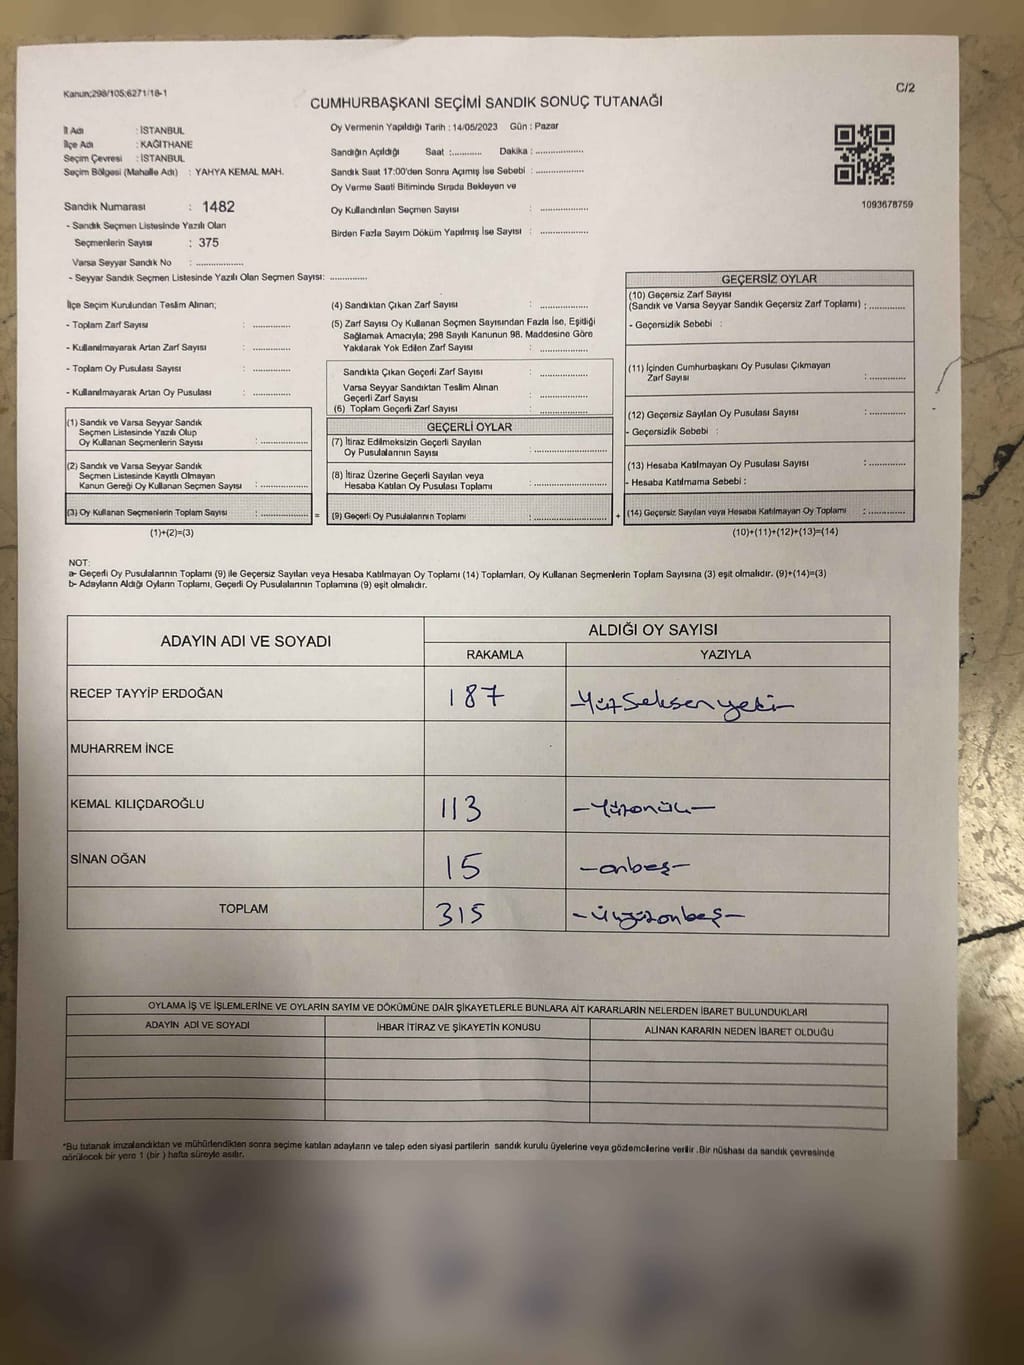 Kanun;298/105;6271/18-1
C/2
CUMHURBAŞKANI SEÇİMİ SANDIK SONUÇ TUTANAĞI
İl Adı : İSTANBUL
İlçe Adı : KAĞITHANE
Seçim Çevresi : İSTANBUL
Seçim Bölgesi (Mahalle Adı) : YAHYA KEMAL MAH.
Sandık Numarası : 1482
- Sandık Seçmen Listesinde Yazılı Olan
Seçmenlerin Sayısı : 375
Varsa Seyyar Sandık No : ..............
- Seyyar Sandık Seçmen Listesinde Yazılı Olan Seçmen Sayısı: ..............
Oy Vermenin Yapıldığı Tarih : 14/05/2023 Gün : Pazar
Sandığın Açıldığı Saat :........... Dakika : ................
Sandık Saat 17:00'den Sonra Açımış İse Sebebi : ................
Oy Verme Saati Bitiminde Sırada Bekleyen ve
Oy Kullandırılan Seçmen Sayısı : ................
Birden Fazla Sayım Döküm Yapılmış İse Sayısı : ................
1093678759
İlçe Seçim Kurulundan Teslim Alınan;
- Toplam Zarf Sayısı : .............
- Kullanılmayarak Artan Zarf Sayısı : .............
- Toplam Oy Pusulası Sayısı : .............
- Kullanılmayarak Artan Oy Pusulası : .............
(1) Sandık ve Varsa Seyyar Sandık
Seçmen Listesinde Yazılı Olup
Oy Kullanan Seçmenlerin Sayısı : ................
(2) Sandık ve Varsa Seyyar Sandık
Seçmen Listesinde Kayıtlı Olmayan
Kanun Gereği Oy Kullanan Seçmen Sayısı : ................
(3) Oy Kullanan Seçmenlerin Toplam Sayısı : ................
(1)+(2)=(3)
(4) Sandıktan Çıkan Zarf Sayısı : ................
(5) Zarf Sayısı Oy Kullanan Seçmen Sayısından Fazla İse, Eşitliği
Sağlamak Amacıyla; 298 Sayılı Kanunun 98. Maddesine Göre
Yakılarak Yok Edilen Zarf Sayısı : ................
Sandıkta Çıkan Geçerli Zarf Sayısı : ................
Varsa Seyyar Sandıktan Teslim Alınan
Geçerli Zarf Sayısı : ................
(6) Toplam Geçerli Zarf Sayısı : ................
GEÇERLİ OYLAR
(7) İtiraz Edilmeksizin Geçerli Sayılan
Oy Pusulalarının Sayısı : ................
(8) İtiraz Üzerine Geçerli Sayılan veya
Hesaba Katılan Oy Pusulası Toplamı : ................
= (9) Geçerli Oy Pusulalarının Toplamı : ................ +
GEÇERSİZ OYLAR
(10) Geçersiz Zarf Sayısı
(Sandık ve Varsa Seyyar Sandık Geçersiz Zarf Toplamı) : ............
- Geçersizlik Sebebi :
(11) İçinden Cumhurbaşkanı Oy Pusulası Çıkmayan
Zarf Sayısı : ............
(12) Geçersiz Sayılan Oy Pusulası Sayısı : ............
- Geçersizlik Sebebi :
(13) Hesaba Katılmayan Oy Pusulası Sayısı : ............
- Hesaba Katılmama Sebebi :
(14) Geçersiz Sayılan veya Hesaba Katılmayan Oy Toplamı : ............
(10)+(11)+(12)+(13)=(14)
NOT:
a- Geçerli Oy Pusulalarının Toplamı (9) ile Geçersiz Sayılan veya Hesaba Katılmayan Oy Toplamı (14) Toplamları, Oy Kullanan Seçmenlerin Toplam Sayısına (3) eşit olmalıdır. (9)+(14)=(3)
b- Adayların Aldığı Oyların Toplamı, Geçerli Oy Pusulalarının Toplamına (9) eşit olmalıdır.
ADAYIN ADI VE SOYADI ALDIĞI OY SAYISI
RAKAMLA YAZIYLA
RECEP TAYYİP ERDOĞAN 187 -YüzSeksenyedi-
MUHARREM İNCE
KEMAL KILIÇDAROĞLU 113 -Yüzonüç-
SİNAN OĞAN 15 -onbeş-
TOPLAM 315 -Üçyüzonbeş-
OYLAMA İŞ VE İŞLEMLERİNE VE OYLARIN SAYIM VE DÖKÜMÜNE DAİR ŞİKAYETLERLE BUNLARA AİT KARARLARIN NELERDEN İBARET BULUNDUKLARI
ADAYIN ADI VE SOYADI İHBAR İTİRAZ VE ŞİKAYETİN KONUSU ALINAN KARARIN NEDEN İBARET OLDUĞU
*Bu tutanak imzalandıktan ve mühürlendikten sonra seçime katılan adayların ve talep eden siyasi partilerin sandık kurulu üyelerine veya gözlemcilerine verilir .Bir nüshası da sandık çevresinde
görülecek bir yere 1 (bir ) hafta süreyle asılır.